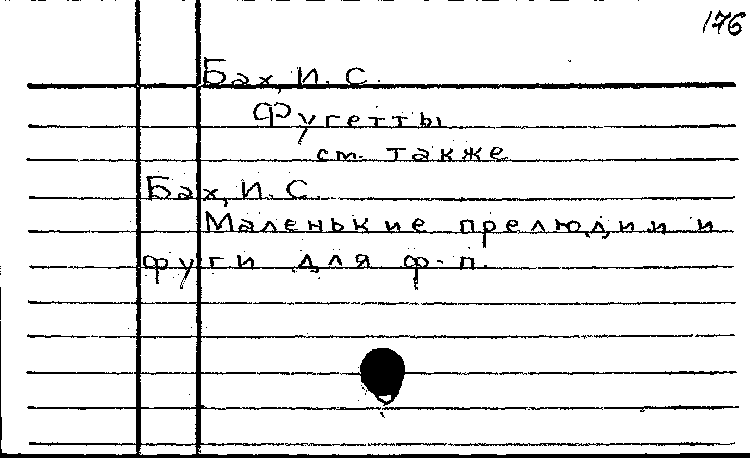 176
Бах, И. С.
Фугетты
см. также
Бах, И. С.
Маленькие прелюдии и
фуги для ф-п.